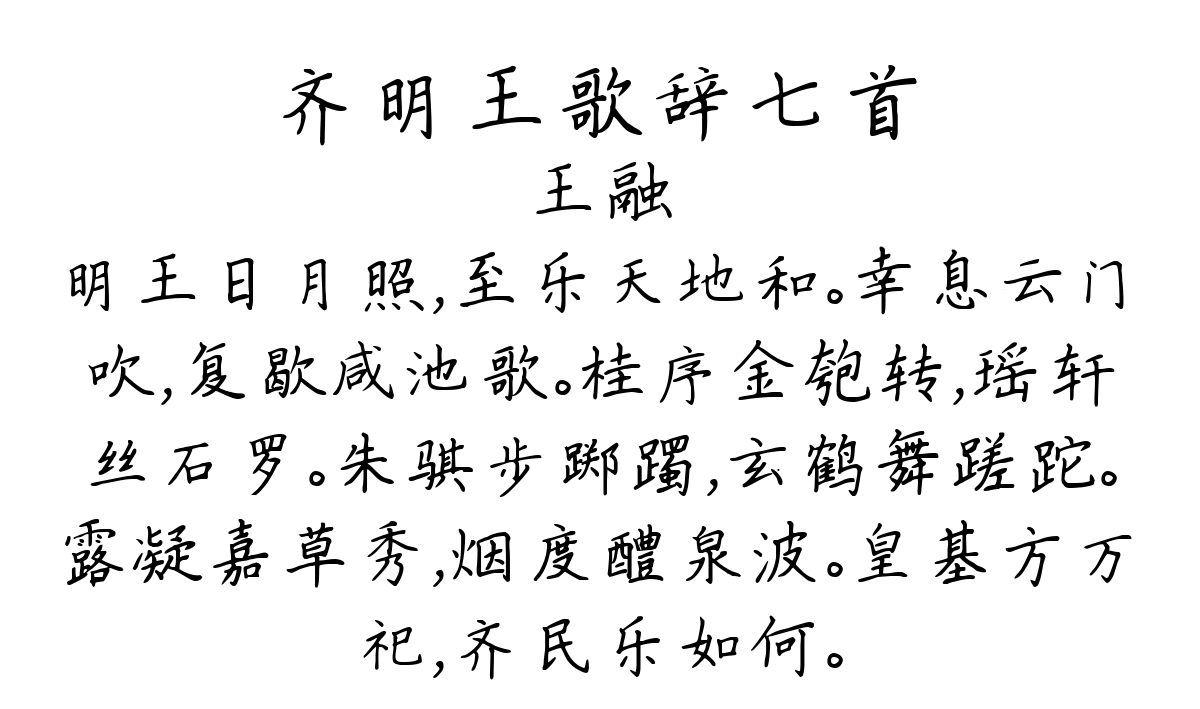 齐明王歌辞七首
王融
明王日月照,至乐天地和。幸息云门
吹,复歇咸池歌。桂序金匏转,瑶轩
丝石罗。朱骐步踯躅,玄鹤舞蹉跎。
露凝嘉草秀,烟度醴泉波。皇基方万
祀,齐民乐如何。